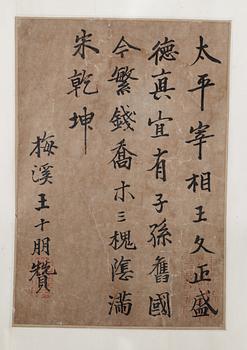 太平宰相王文正盛
德真宜有子孫舊國
今繁錢喬木三槐隱滿
宋乾坤
梅溪王十朋贊